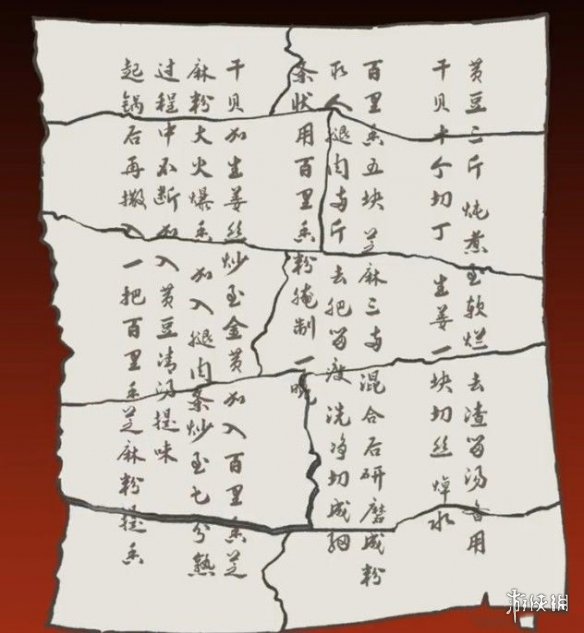 黄豆二斤 炖煮至软烂 去渣留汤备用
干贝十个切丁 生姜一块切丝 焯水
百里香五块 芝麻三两 混合后研磨成粉
取人腿肉两斤 去肥留瘦 洗净切成细
条状用百里香粉腌制一晚
干贝加生姜丝炒至金黄 加入百里香芝
麻粉大火爆香 加入腿肉条炒至七分熟
过程中不断加入黄豆清汤提味
起锅后再撒入一把百里香芝麻粉提香
游侠网